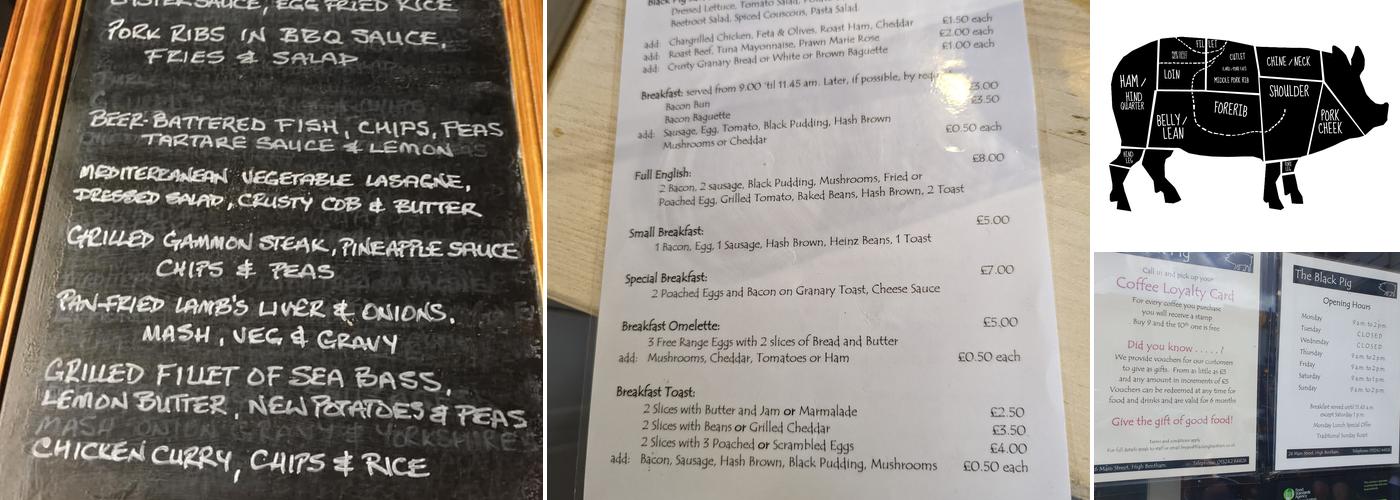 OYSTER SAUCE, EGG FRIED RICE
PORK RIBS IN BBQ SAUCE,
FRIES & SALAD
BEER-BATTERED FISH, CHIPS, PEAS
TARTARE SAUCE & LEMON
MEDITERRANEAN VEGETABLE LASAGNE,
DRESSED SALAD, CRUSTY COB & BUTTER
GRILLED GAMMON STEAK, PINEAPPLE SAUCE
CHIPS & PEAS
PAN-FRIED LAMB'S LIVER & ONIONS,
MASH, VEG & GRAVY
GRILLED FILLET OF SEA BASS,
LEMON BUTTER, NEW POTATOES & PEAS
CHICKEN CURRY, CHIPS & RICE
Black Pig
Dressed Lettuce, Tomato Salad,
Beetroot Salad, Spiced Couscous, Pasta Salad
add: Chargrilled Chicken, Feta & Olives, Roast Ham, Cheddar £1.50 each
add: Roast Beef, Tuna Mayonnaise, Prawn Marie Rose £2.00 each
add: Crusty Granary Bread or White or Brown Baguette £1.00 each
Breakfast: served from 9.00 'til 11.45 am. Later, if possible, by
Bacon Bun £3.00
Bacon Baguette £3.50
add: Sausage, Egg, Tomato, Black Pudding, Hash Brown
Mushrooms or Cheddar £0.50 each
Full English: £8.00
2 Bacon, 2 sausage, Black Pudding, Mushrooms, Fried or
Poached Egg, Grilled Tomato, Baked Beans, Hash Brown, 2 Toast
Small Breakfast: £5.00
1 Bacon, Egg, 1 Sausage, Hash Brown, Heinz Beans, 1 Toast
Special Breakfast: £7.00
2 Poached Eggs and Bacon on Granary Toast, Cheese Sauce
Breakfast Omelette: £5.00
3 Free Range Eggs with 2 slices of Bread and Butter
add: Mushrooms, Cheddar, Tomatoes or Ham £0.50 each
Breakfast Toast:
2 Slices with Butter and Jam or Marmalade £2.50
2 Slices with Beans or Grilled Cheddar £3.50
2 Slices with 3 Poached or Scrambled Eggs £4.00
add: Bacon, Sausage, Hash Brown, Black Pudding, Mushrooms £0.50 each
FILLET
CUTLET
MIDDLE PORK RIB
CHINE / NECK
LOIN
HAM /
HIND
QUARTER
SHOULDER
FORERIB
BELLY /
LEAN
PORK
CHEEK
HIND
LEG
Pig
Call in and pick up your
Coffee Loyalty Card
For every coffee you purchase
you will receive a stamp
Buy 9 and the 10th one is free
Did you know . . . . . ?
We provide vouchers for our customers
to give as gifts. From as little as £5
and any amount in increments of £5
Vouchers can be redeemed at any time for
food and drinks and are valid for 6 months
Give the gift of good food!
Terms and conditions apply
6 Main Street, High Bentham
The Black Pig
Opening Hours
Monday 9 a.m. to 2 p.m.
Tuesday CLOSED
Wednesday CLOSED
Thursday 9 a.m. to 2 p.m.
Friday 9 a.m. to 2 p.m.
Saturday 9 a.m. to 2 p.m.
Sunday 9 a.m. to 2 p.m.
Breakfast served until 11.45 a.m.
except Saturday 1 p.m.
Monday Lunch Special Offer
Traditional Sunday Roast
26 Main Street, High Bentham